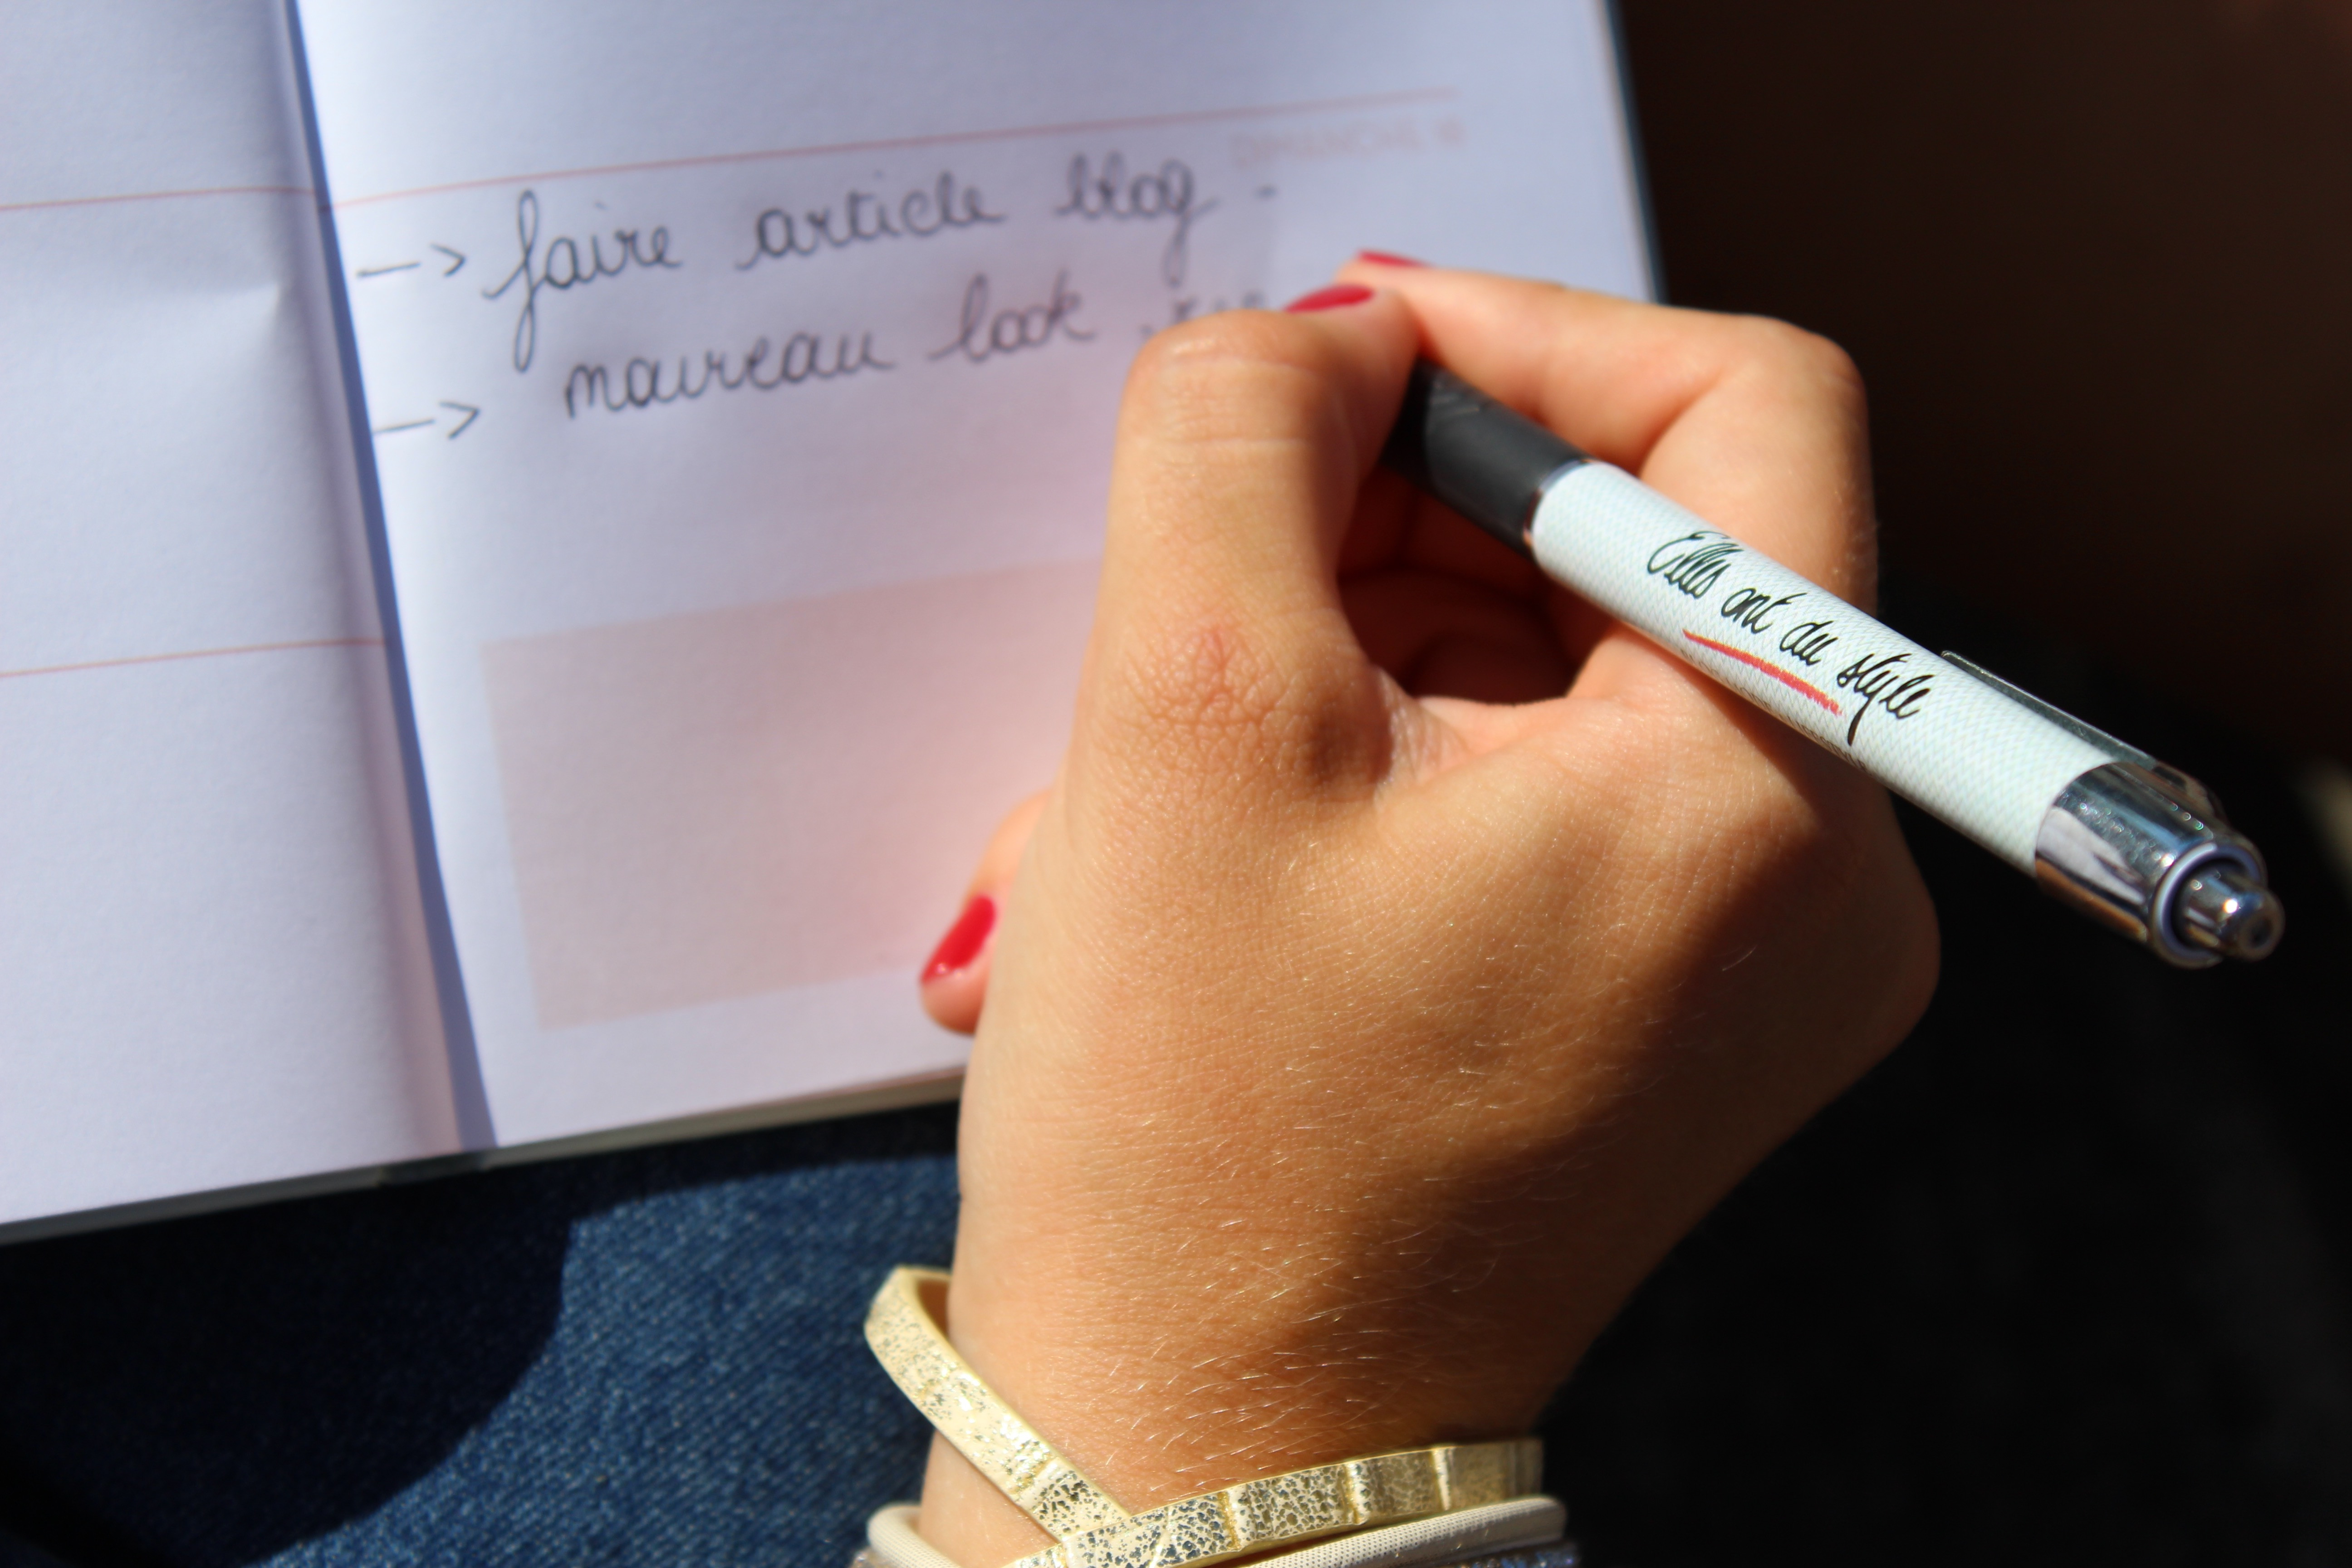 DIMANCHE
-> faire article blog -
-> nouveau look
Elles ont du style